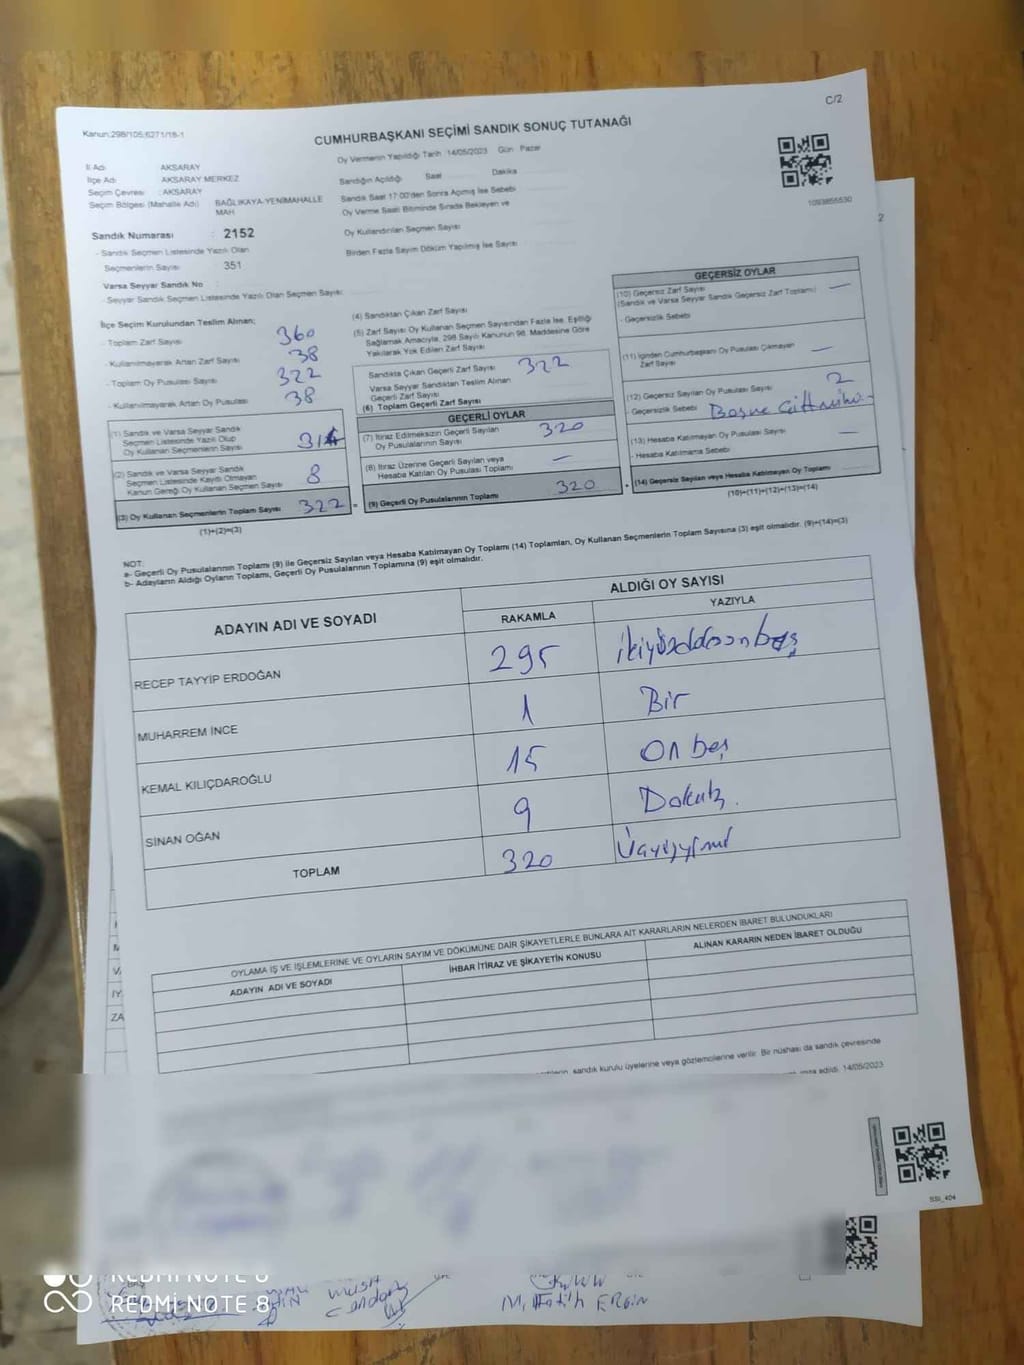 C/2
Kanun:298/105;6271/18-1
CUMHURBAŞKANI SEÇİMİ SANDIK SONUÇ TUTANAĞI
İl Adı AKSARAY
İlçe Adı AKSARAY MERKEZ
Seçim Çevresi : AKSARAY
Seçim Bölgesi (Mahalle Adı) BAĞLIKAYA-YENİMAHALLE MAH
Sandık Numarası : 2152
- Sandık Seçmen Listesinde Yazılı Olan
Seçmenlerin Sayısı 351
Varsa Seyyar Sandık No :
- Seyyar Sandık Seçmen Listesinde Yazılı Olan Seçmen Sayısı:
Oy Vermenin Yapıldığı Tarih :14/05/2023 Gün Pazar
Sandığın Açıldığı Saat Dakika
Sandık Saat 17:00'den Sonra Açılmış İse Sebebi
Oy Verme Saati Bitiminde Sırada Bekleyen ve
Oy Kullandırılan Seçmen Sayısı
Birden Fazla Sayım Döküm Yapılmış İse Sayısı
1093855530
2
İlçe Seçim Kurulundan Teslim Alınan;
- Toplam Zarf Sayısı 360
- Kullanılmayarak Artan Zarf Sayısı 38
- Toplam Oy Pusulası Sayısı 322
- Kullanılmayarak Artan Oy Pusulası 38
(1) Sandık ve Varsa Seyyar Sandık
Seçmen Listesinde Yazılı Olup
Oy Kullanan Seçmenlerin Sayısı 314
(2) Sandık ve Varsa Seyyar Sandık
Seçmen Listesinde Kayıtlı Olmayan
Kanun Gereği Oy Kullanan Seçmen Sayısı 8
(3) Oy Kullanan Seçmenlerin Toplam Sayısı 322 =
(1)+(2)=(3)
(4) Sandıktan Çıkan Zarf Sayısı
(5) Zarf Sayısı Oy Kullanan Seçmen Sayısından Fazla İse, Eşitliği
Sağlamak Amacıyla, 298 Sayılı Kanunun 98. Maddesine Göre
Yakılarak Yok Edilen Zarf Sayısı
Sandıkta Çıkan Geçerli Zarf Sayısı 322
Varsa Seyyar Sandıktan Teslim Alınan
Geçerli Zarf Sayısı
(6) Toplam Geçerli Zarf Sayısı
GEÇERLİ OYLAR
(7) İtiraz Edilmeksizin Geçerli Sayılan
Oy Pusulalarının Sayısı 320
(8) İtiraz Üzerine Geçerli Sayılan veya
Hesaba Katılan Oy Pusulası Toplamı —
(9) Geçerli Oy Pusulalarının Toplamı 320 +
GEÇERSİZ OYLAR
(10) Geçersiz Zarf Sayısı —
(Sandık ve Varsa Seyyar Sandık Geçersiz Zarf Toplamı)
- Geçersizlik Sebebi
(11) İçinden Cumhurbaşkanı Oy Pusulası Çıkmayan
Zarf Sayısı —
(12) Geçersiz Sayılan Oy Pusulası Sayısı 2
- Geçersizlik Sebebi
(13) Hesaba Katılmayan Oy Pusulası Sayısı —
- Hesaba Katılmama Sebebi
(14) Geçersiz Sayılan veya Hesaba Katılmayan Oy Toplamı —
(10)+(11)+(12)+(13)=(14)
NOT:
a- Geçerli Oy Pusulalarının Toplamı (9) ile Geçersiz Sayılan veya Hesaba Katılmayan Oy Toplamı (14) Toplamları, Oy Kullanan Seçmenlerin Toplam Sayısına (3) eşit olmalıdır. (9)+(14)=(3)
b- Adayların Aldığı Oyların Toplamı, Geçerli Oy Pusulalarının Toplamına (9) eşit olmalıdır.
ADAYIN ADI VE SOYADI
ALDIĞI OY SAYISI
RAKAMLA YAZIYLA
RECEP TAYYİP ERDOĞAN 295 ikiyüzddosonbeş
MUHARREM İNCE 1 Bir
KEMAL KILIÇDAROĞLU 15 On beş
SİNAN OĞAN 9 Dokuz.
TOPLAM 320
OYLAMA İŞ VE İŞLEMLERİNE VE OYLARIN SAYIM VE DÖKÜMÜNE DAİR ŞİKAYETLERLE BUNLARA AİT KARARLARIN NELERDEN İBARET BULUNDUKLARI
ADAYIN ADI VE SOYADI
İHBAR İTİRAZ VE ŞİKAYETİN KONUSU
ALINAN KARARIN NEDEN İBARET OLDUĞU
sandık kurulu üyelerine veya gözlemcilerine verilir. Bir nüshası da sandık çevresinde
edildi. 14/05/2023
ZA
SSI_404
REDMI NOTE 8
M. Fatih ERGİN